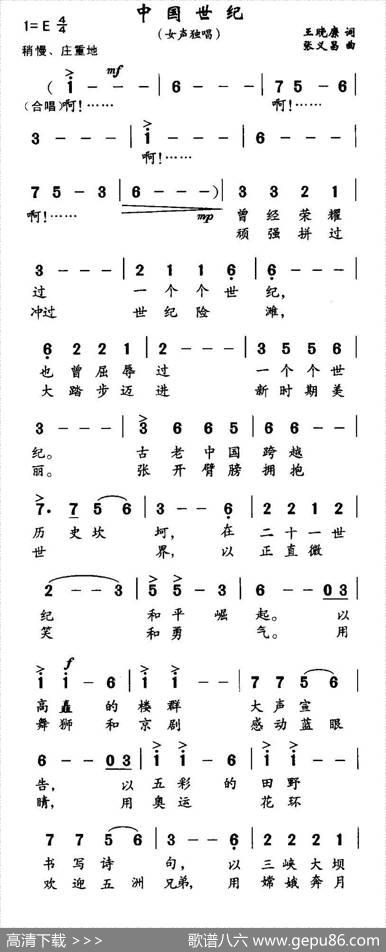 中国世纪
1=E 4/4
（女声独唱）
王晓廉 词
张义昌 曲
稍慢、庄重地
mf
( i - - - | 6 - - - | 7 5 - 6 |
（合唱）啊！…… 啊！……
3 - - - | i - - - | 6 - - - |
啊！……
7 5 - 3 | 6 - - - ) | 3 3 2 1 |
啊！…… mp 曾 经 荣 耀
顽 强 拼 过
3 - - - | 2 1 1 6 | 6 - - - |
过 一 个 个 世 纪，
冲过 世 纪 险 滩，
6 2 2 1 | 2 - - - | 3 5 5 6 |
也 曾 屈 辱 过 一 个 个 世
大 踏 步 迈 进 新 时 期 美
3 - - - | 3 6 6 5 | 6 6 - - |
纪。 古 老 中 国 跨 越
丽。 张 开 臂 膀 拥 抱
7· 7 5 6 | 3 - - 6 | 2 2 1 2 |
历 史 坎 坷， 在 二 十 一 世
世 界， 以 正 直 微
2 - - 3 | 5 5 - 3 | 6 - - 0 3 |
纪 和 平 崛 起。 以
笑 和 勇 气。 用
f
i i - 6 | i i - i | 7 7 5 6 |
高 矗 的 楼 群 大 声 宣
舞 狮 和 京 剧 感 动 蓝 眼
6 - - 0 3 | i i - 6 | i i - - |
告， 以 五 彩 的 田 野
睛， 用 奥 运 花 环
7 7 5 6 | 3 - - 6 | 2 2 1 2 |
书 写 诗 句， 以 三 峡 大 坝
欢 迎 五 洲 兄弟， 用 嫦 娥 奔 月
高清下载 >>>
歌谱八六 www.gepu86.com